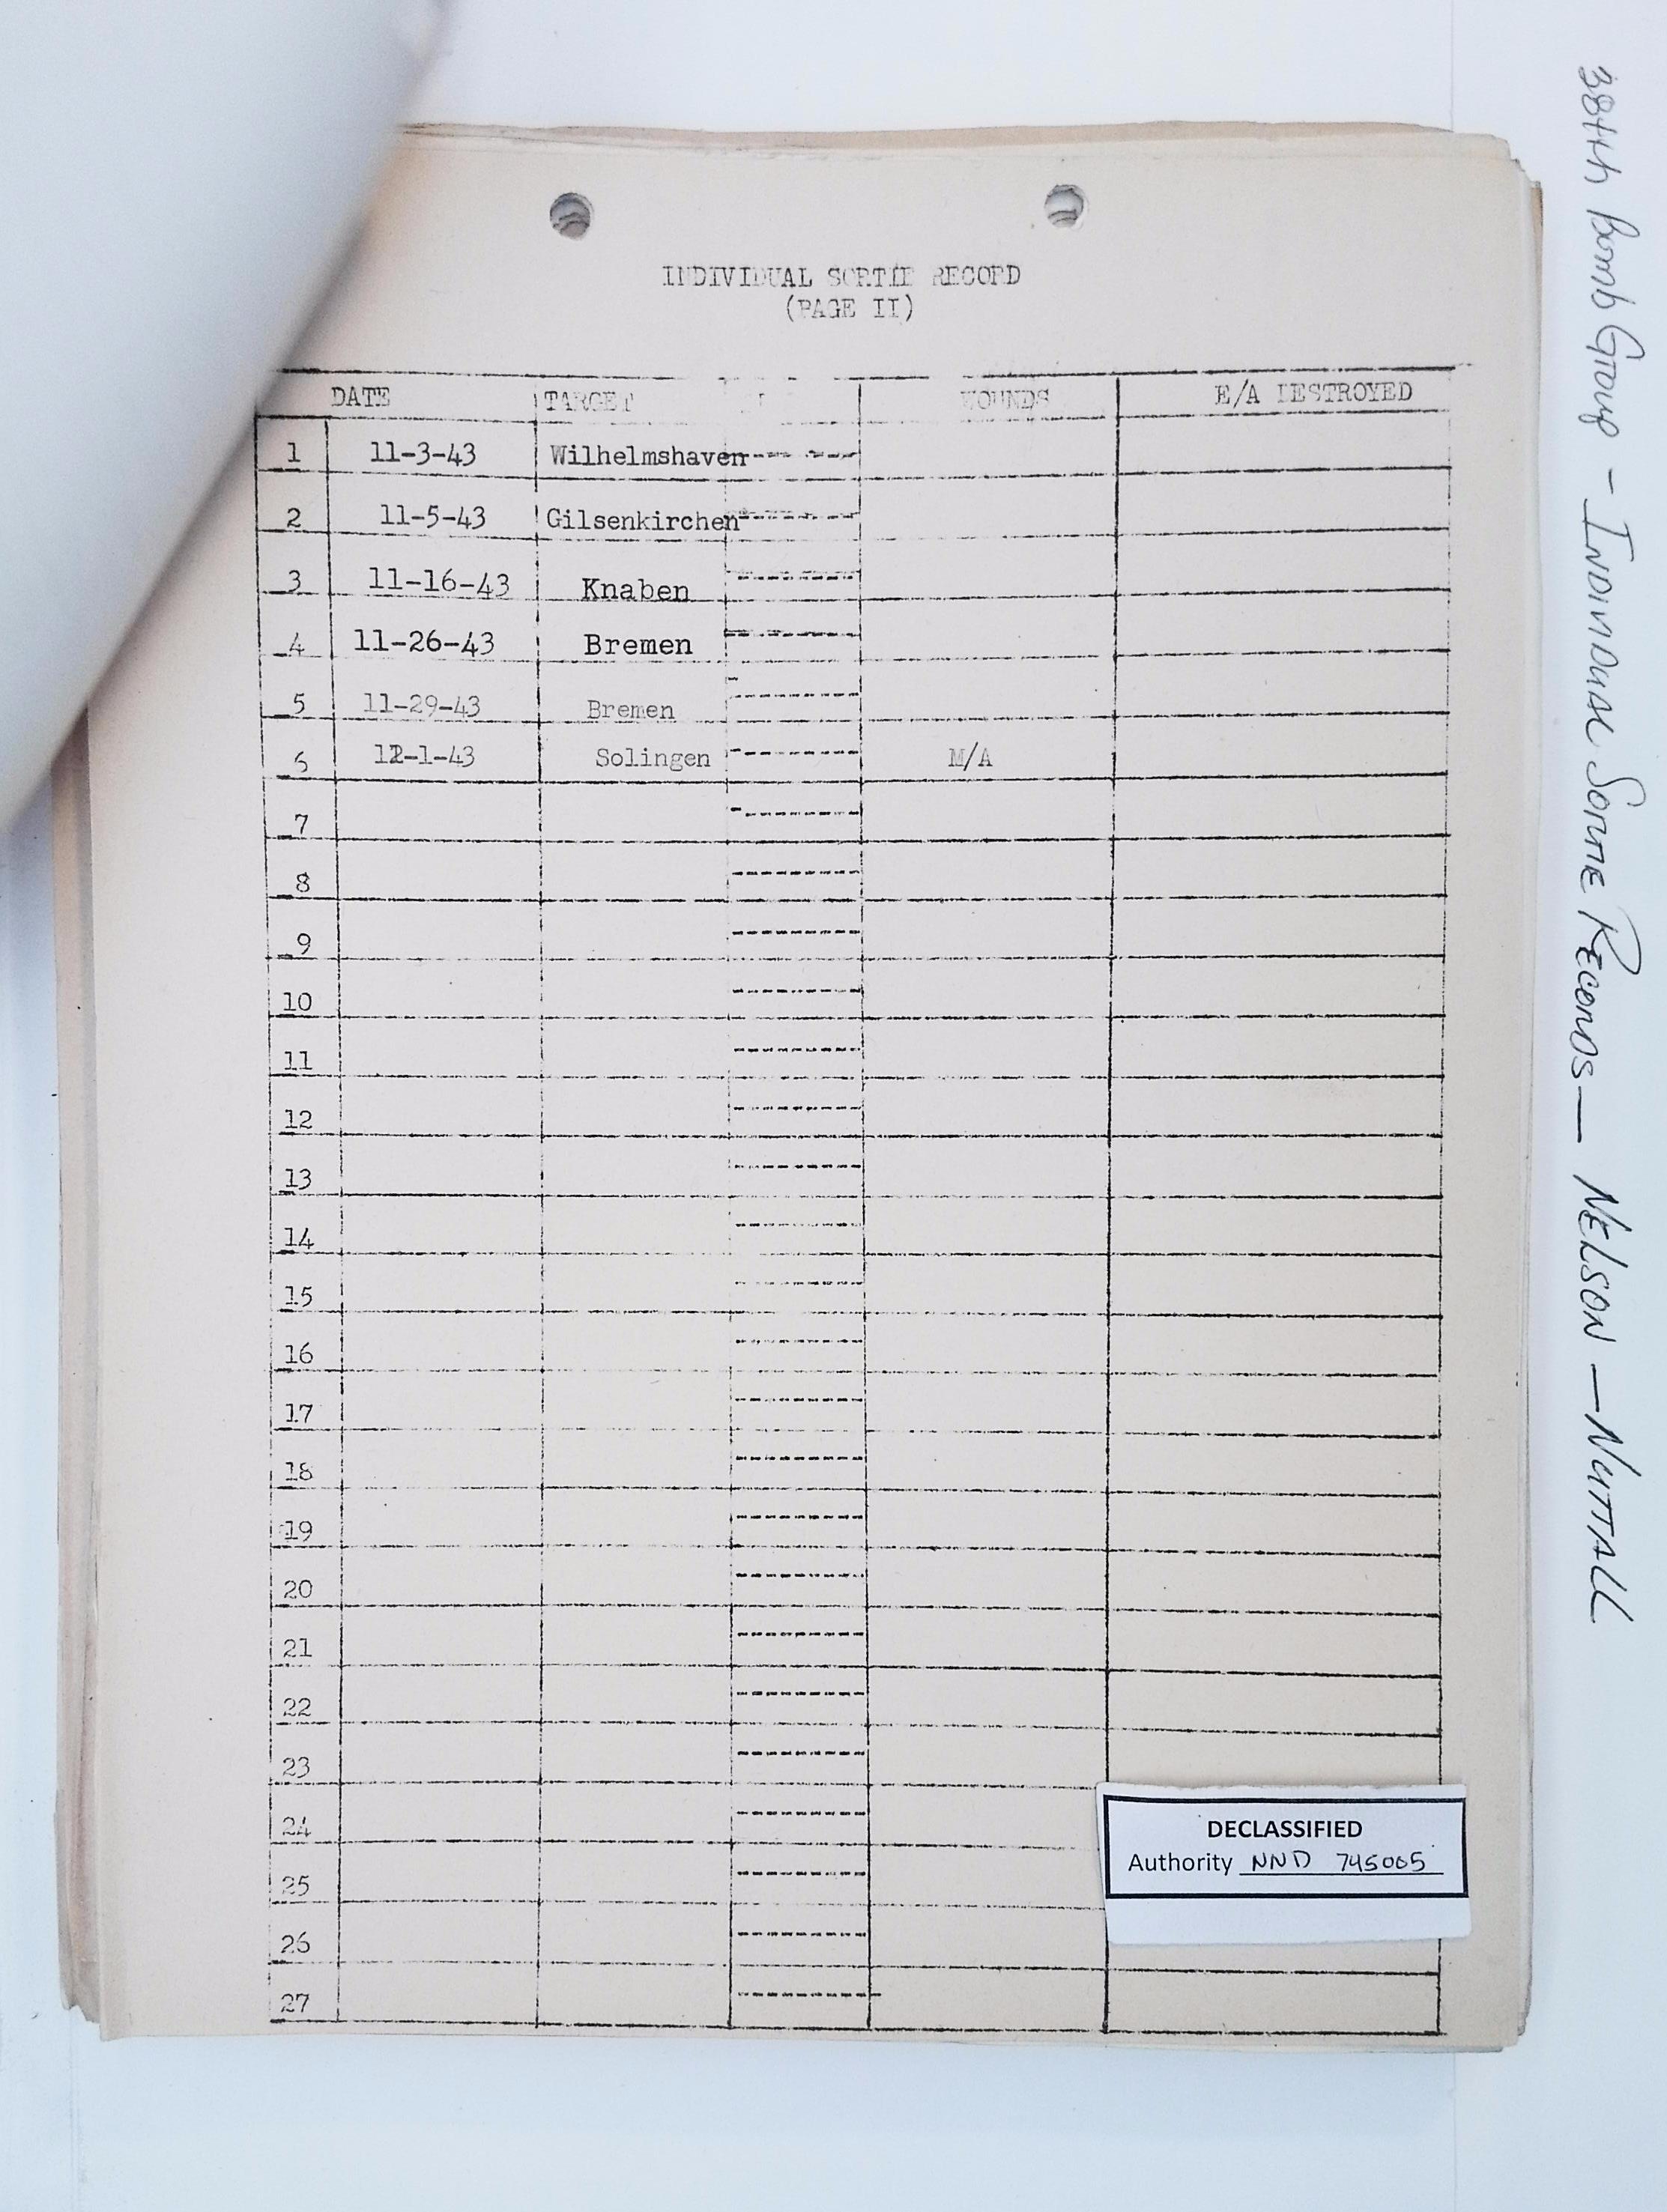 INDIVIDUAL SORTIE RECORD
(PAGE II)
DATE TARGET WOUNDS E/A DESTROYED
1 11-3-43 Wilhelmshaven
2 11-5-43 Gilsenkirchen
3 11-16-43 Knaben
4 11-26-43 Bremen
5 11-29-43 Bremen
6 12-1-43 Solingen M/A
7
8
9
10
11
12
13
14
15
16
17
18
19
20
21
22
23
24
25
26
27
DECLASSIFIED
Authority NND 745005
384th Bomb Group - Individual Sortie Records — NELSON — NUTTALL